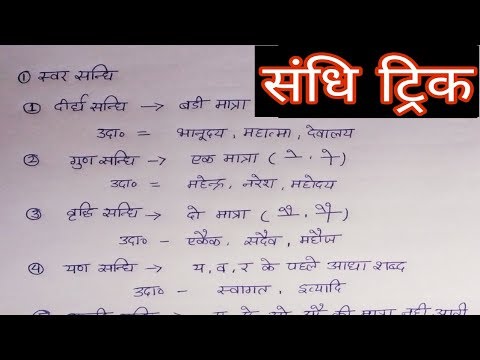 संधि ट्रिक
① स्वर सन्धि
① दीर्घ सन्धि → बडी मात्रा
उदा० = भानूदय, महात्मा, देवालय
② गुण सन्धि → एक मात्रा ( े , ो )
उदा० = महेन्द्र, नरेश, महोदय
③ वृद्धि सन्धि → दो मात्रा ( ै , ौ )
उदा० - एकैक, सदैव, महौज
④ यण सन्धि → य, व, र के पहले आधा शब्द
उदा० - स्वागत, इत्यादि
की मात्रा नहीं आती